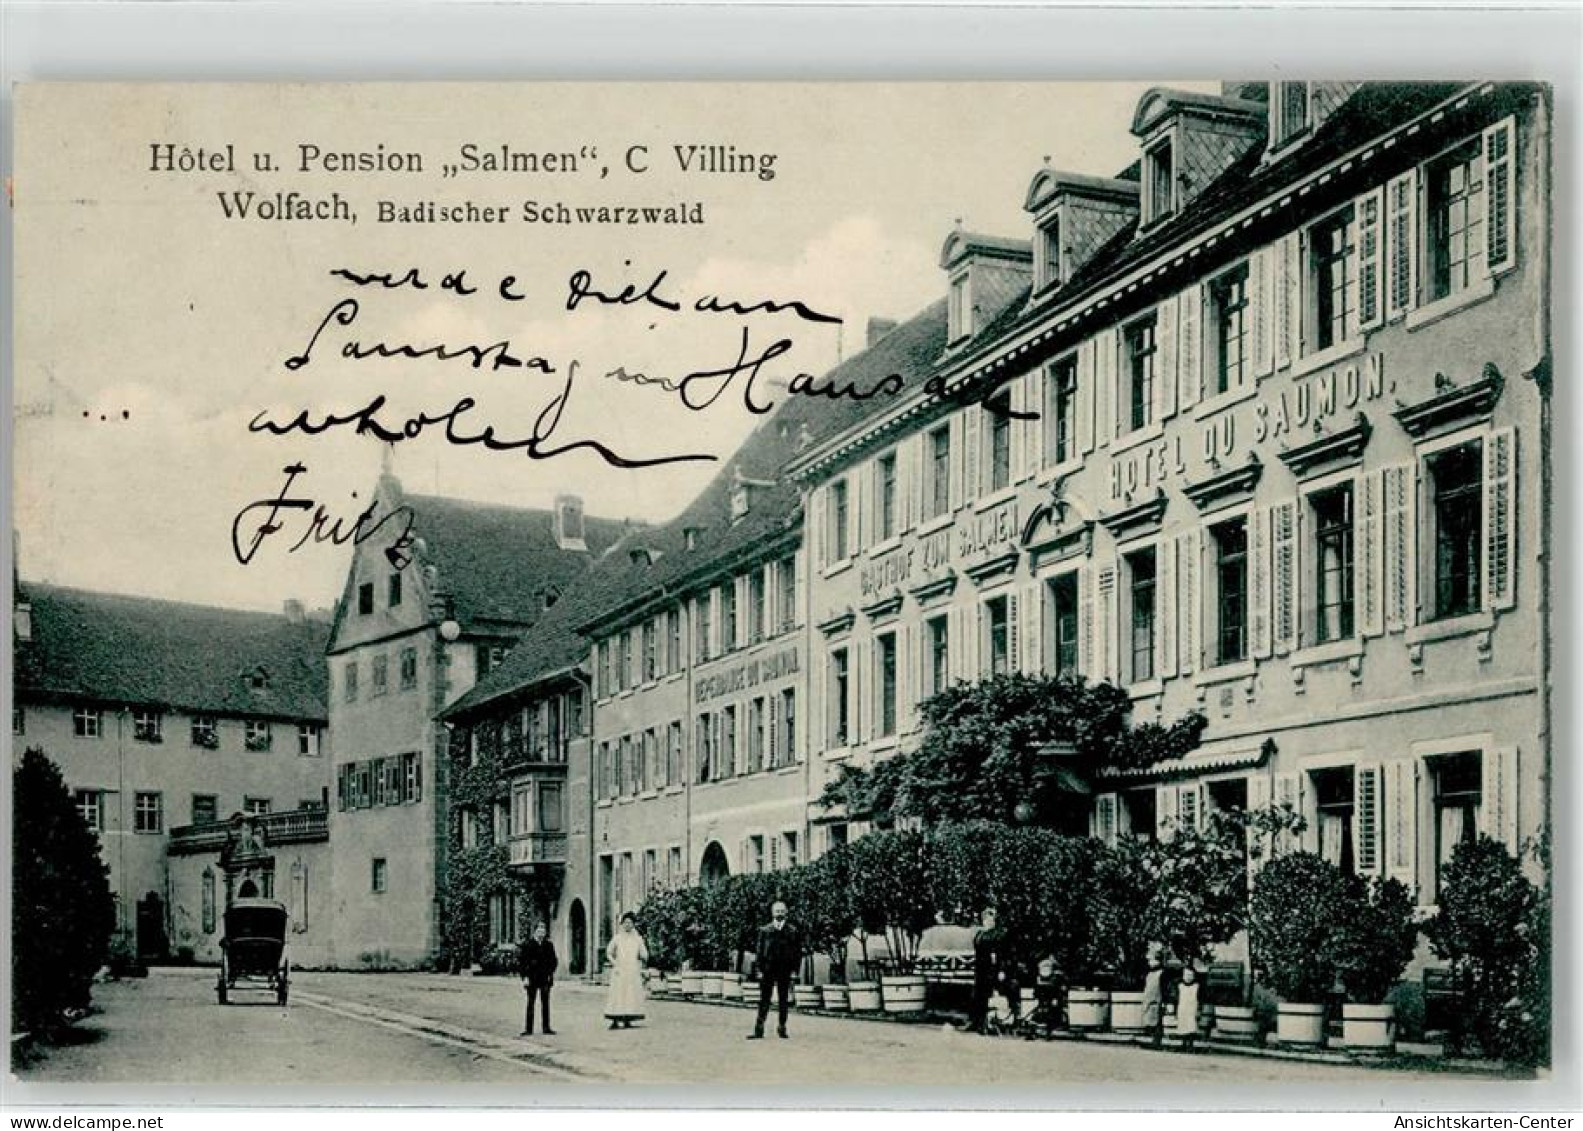 Hôtel u. Pension „Salmen“, C Villing
Wolfach, Badischer Schwarzwald
werde Dich am
Samstag in Hausach
abholen
Fritz
HOTEL DU SAUMON.
GASTHOF ZUM SALMEN
DEPENDANCE DU SAUMON.
Ansichtskarten-Center